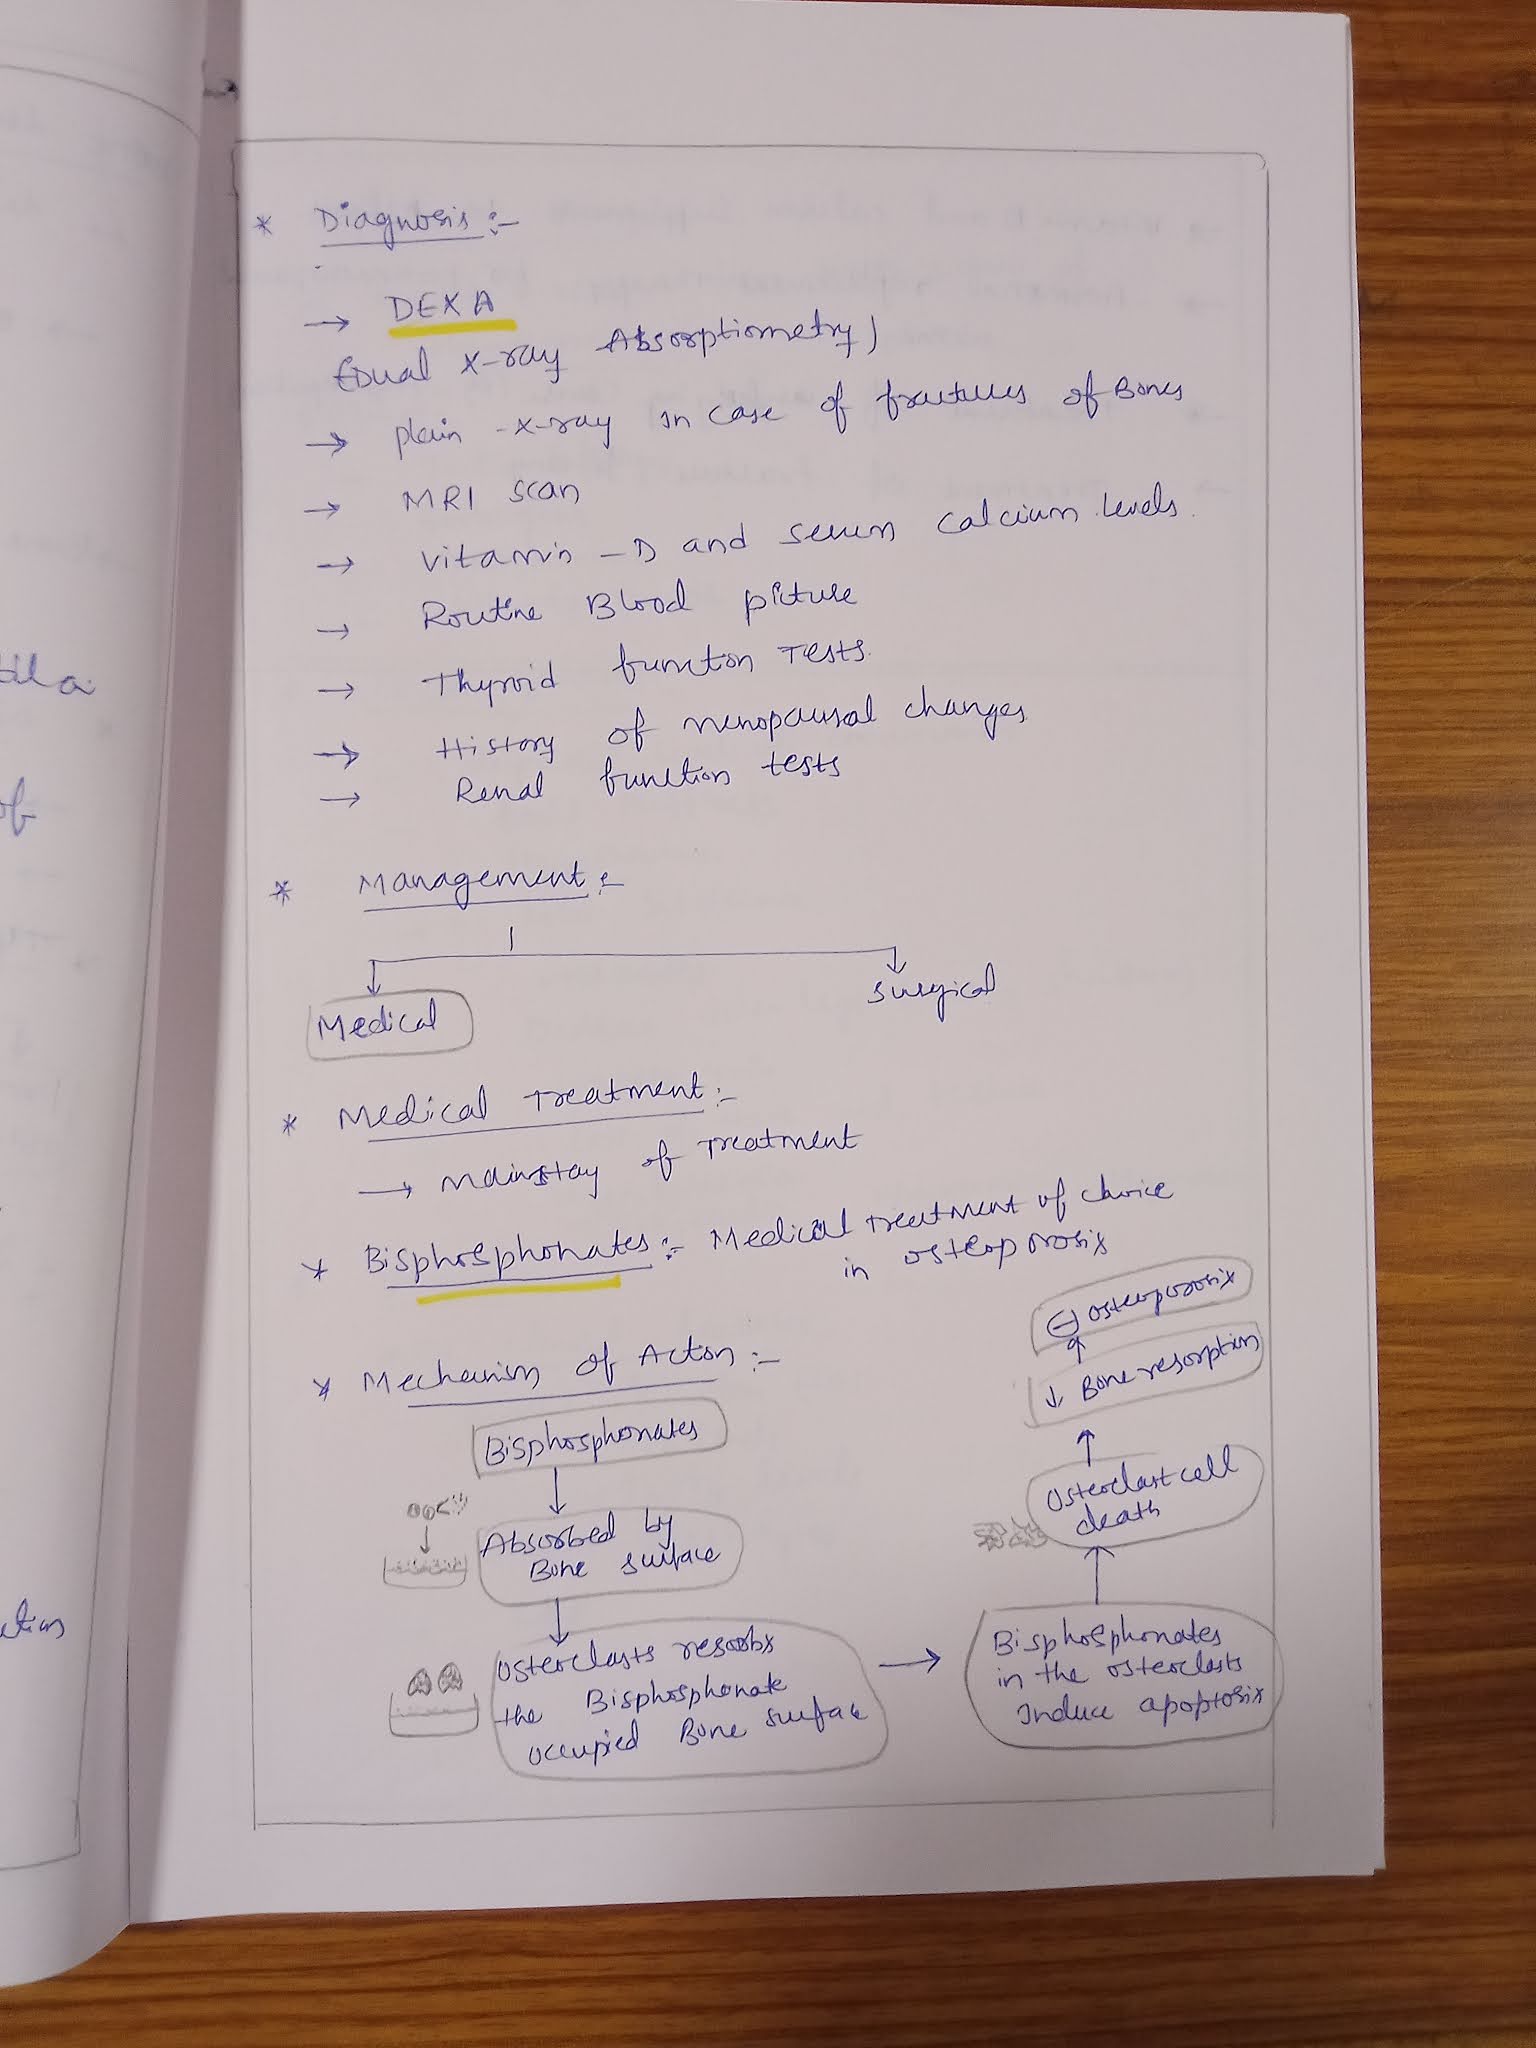 * Diagnosis :-
→ DEXA
(Dual X-ray Absorptiometry)
→ plain -X-ray in case of fractures of Bones
→ MRI scan
→ vitamin - D and serum calcium levels.
→ Routine Blood picture
→ Thyroid function Tests.
→ History of menopausal changes
→ Renal function tests
* Management :-
Medical
surgical
* Medical Treatment :-
→ Mainstay of Treatment
* Bisphosphonates :- Medical treatment of choice
in osteoporosis
* Mechanism of Acton :-
Bisphosphonates
↓
Absorbed by
Bone surface
↓
Osteoclasts resorbs
the Bisphosphonate
occupied Bone surface
→
Bisphosphonates
in the osteoclasts
Induce apoptosis
↑
Osteoclast cell
death
↑
↓ Bone resorption
↑
(-) osteoporosis
lla
of